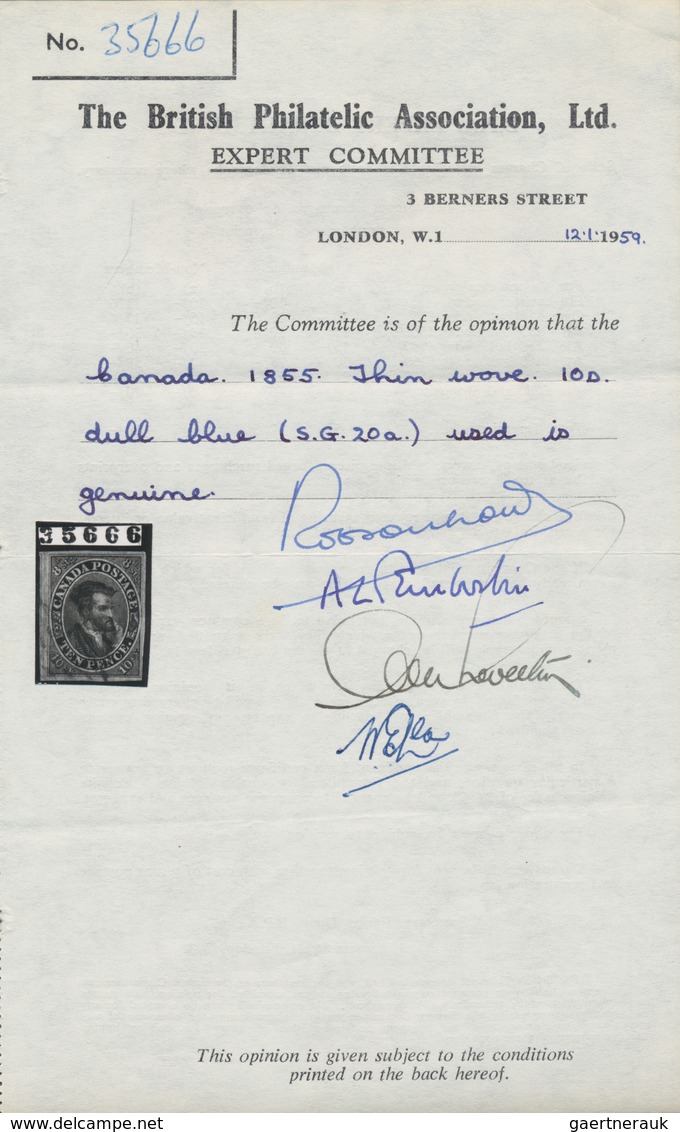 No. 35666
The British Philatelic Association, Ltd.
EXPERT COMMITTEE
3 BERNERS STREET
LONDON, W.1 12.1.1959.
The Committee is of the opinion that the
Canada. 1855. Thin wove. 10D.
dull blue (S.G.20a.) used is
genuine.
35666
CANADA POSTAGE
TEN PENCE.
10 10
This opinion is given subject to the conditions
printed on the back hereof.
www.delcampe.net
gaertnerauk